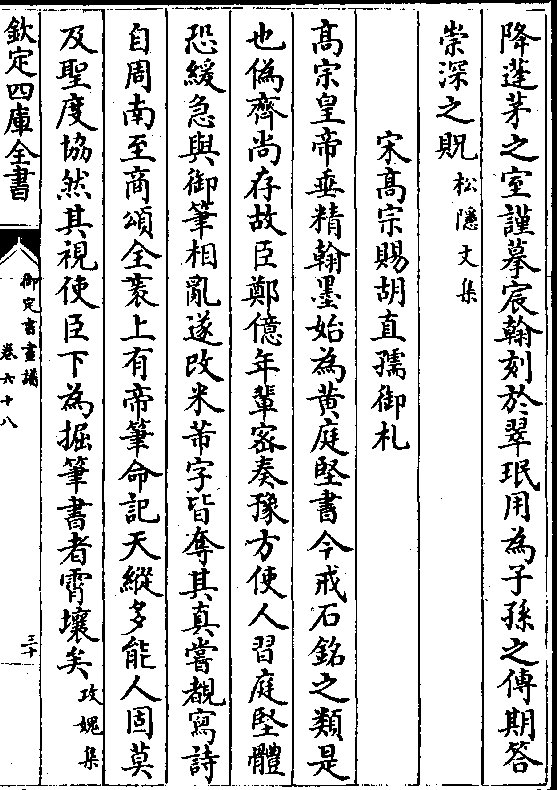 降蓬茅之室謹摹宸翰刻於翠珉用為子孫之傳期答
崇深之貺松隱文集
宋髙宗賜胡直孺御札
髙宗皇帝垂精翰墨始為黄庭堅書今戒石銘之類是
也偽齊尚存故臣鄭億年輩密奏豫方使人習庭堅體
恐緩急與御筆相亂遂改米芾字皆奪其真嘗覩寫詩
自周南至商頌全袠上有帝筆命記天縱多能人固莫
及聖度恊然其視使臣下為掘筆書者霄壤矣攻媿集
欽定四庫全書
御定書畫譜
卷六十八
三十